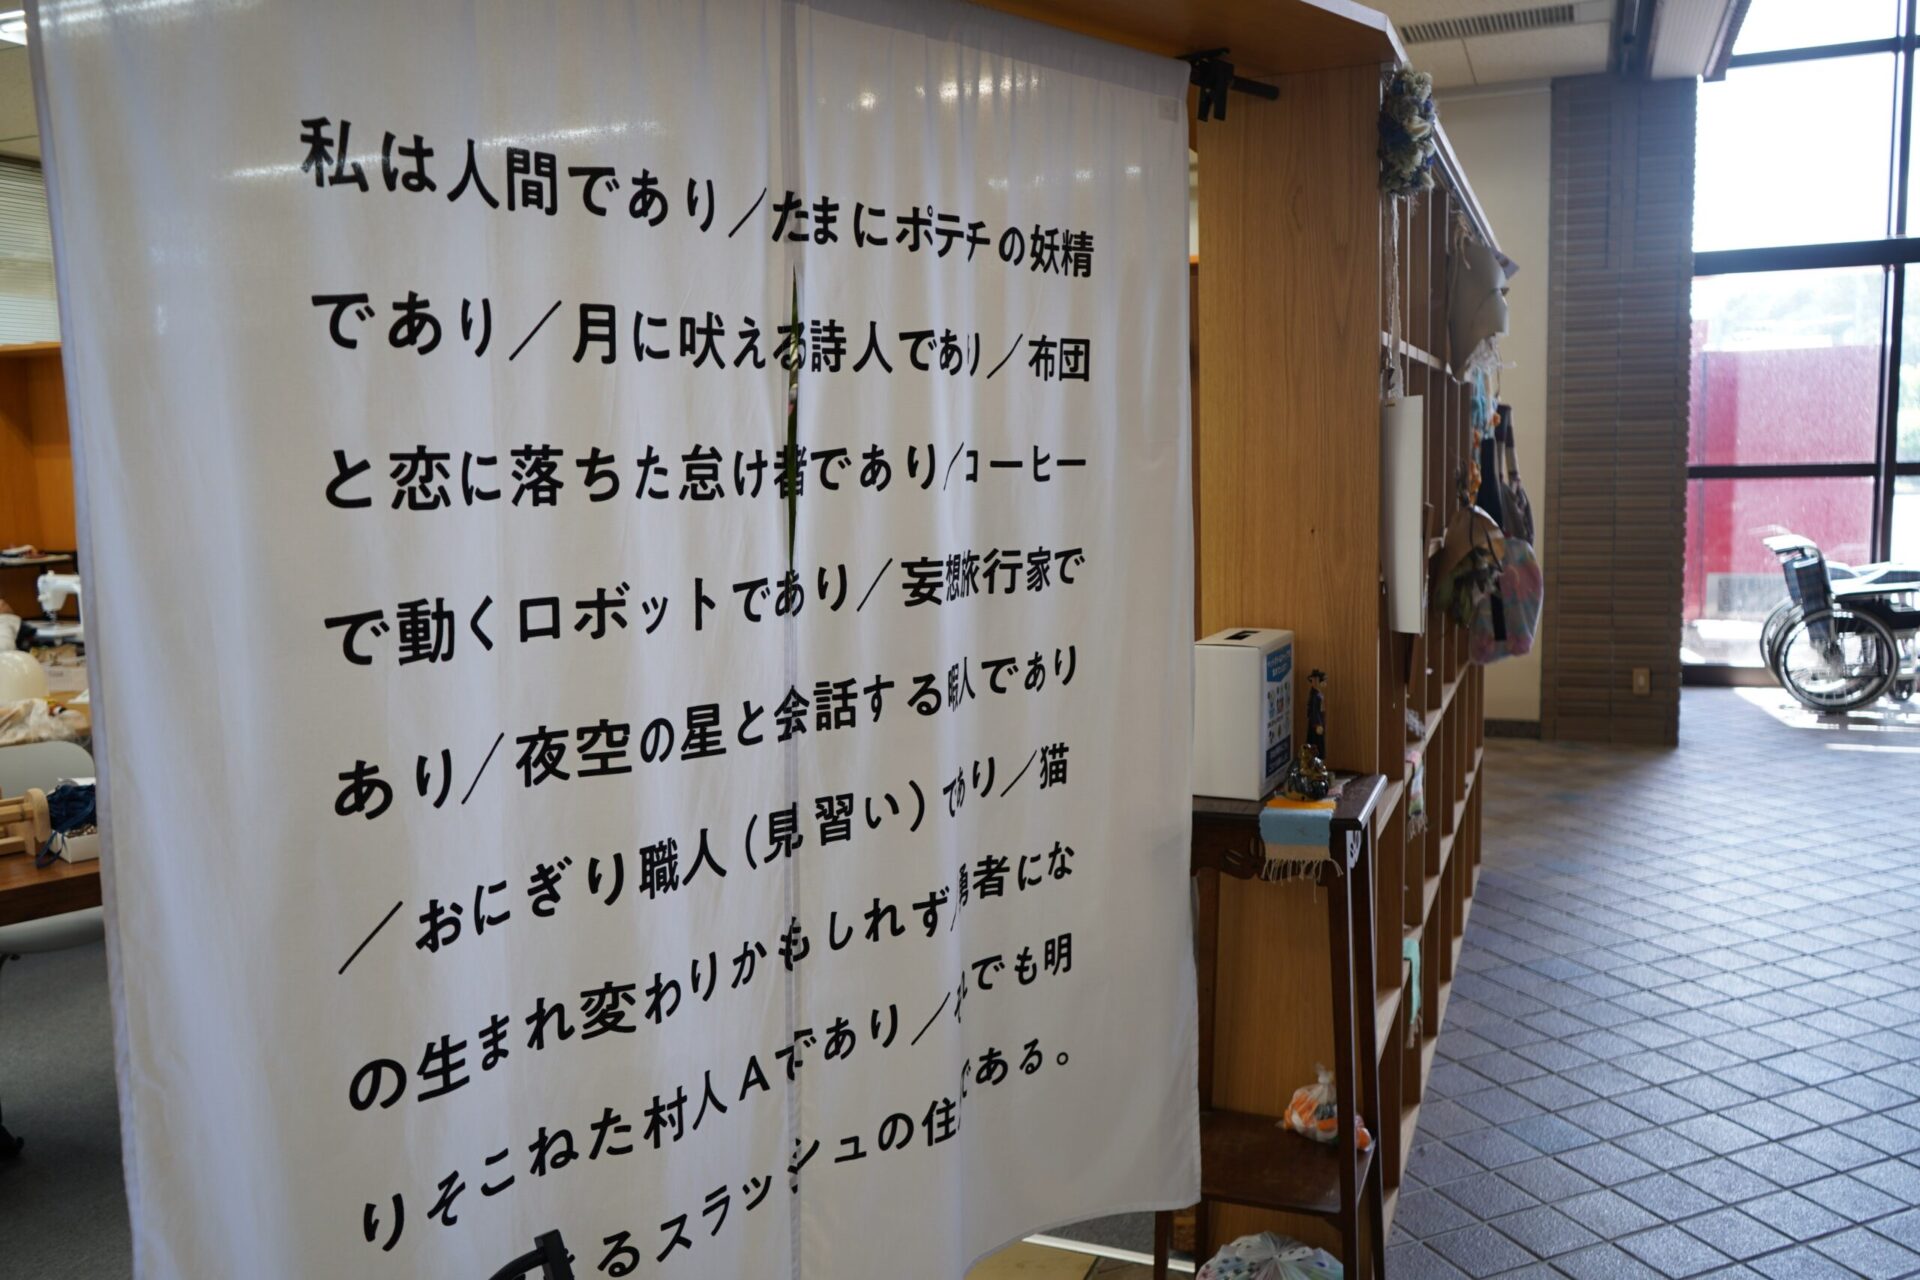 私は人間であり／たまにポテチの妖精
であり／月に吠える詩人であり／布団
と恋に落ちた怠け者であり／コーヒー
で動くロボットであり／妄想旅行家で
あり／夜空の星と会話する暇人であり
／おにぎり職人（見習い）であり／猫
の生まれ変わりかもしれず／勇者にな
りそこねた村人Aであり／それでも明
るスラッシュの住人である。